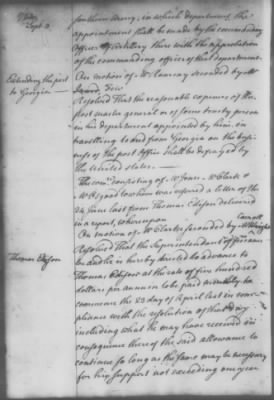 Sept. 3
southern army, in which department the
appointment shall be made by the commanding
officer of artillery there with the approbation
of the commanding officer of that department.
Extending the post
to Georgia
On motion of Mr Ramsay seconded by Mr
Few
Resolved That the reasonable expences of the
post master general or of some trusty person
in his department appointed by him, in
travelling to and from Georgia on the busi-
ness of the post Office shall be defrayed by
the united states.
The comee. consisting of Mr Mr Clark &
Mr to whom was referred a letter of the
24 June last from Thomas Edison delivered
in a report, whereupon
On motion of Mr Clark seconded by Mr Carroll
Thomas Edison
Resolved That the Superintendant of finance
be and he is hereby directed to advance to
Thomas Edison at the rate of five hundred
dollars per annum to be paid monthly to
commence the 23 day of April last in com-
pliance with the resolution of that day
including what he may have received in
consequence thereof the said allowance to
continue so long as the same may be necessary
for his support not exceeding one year